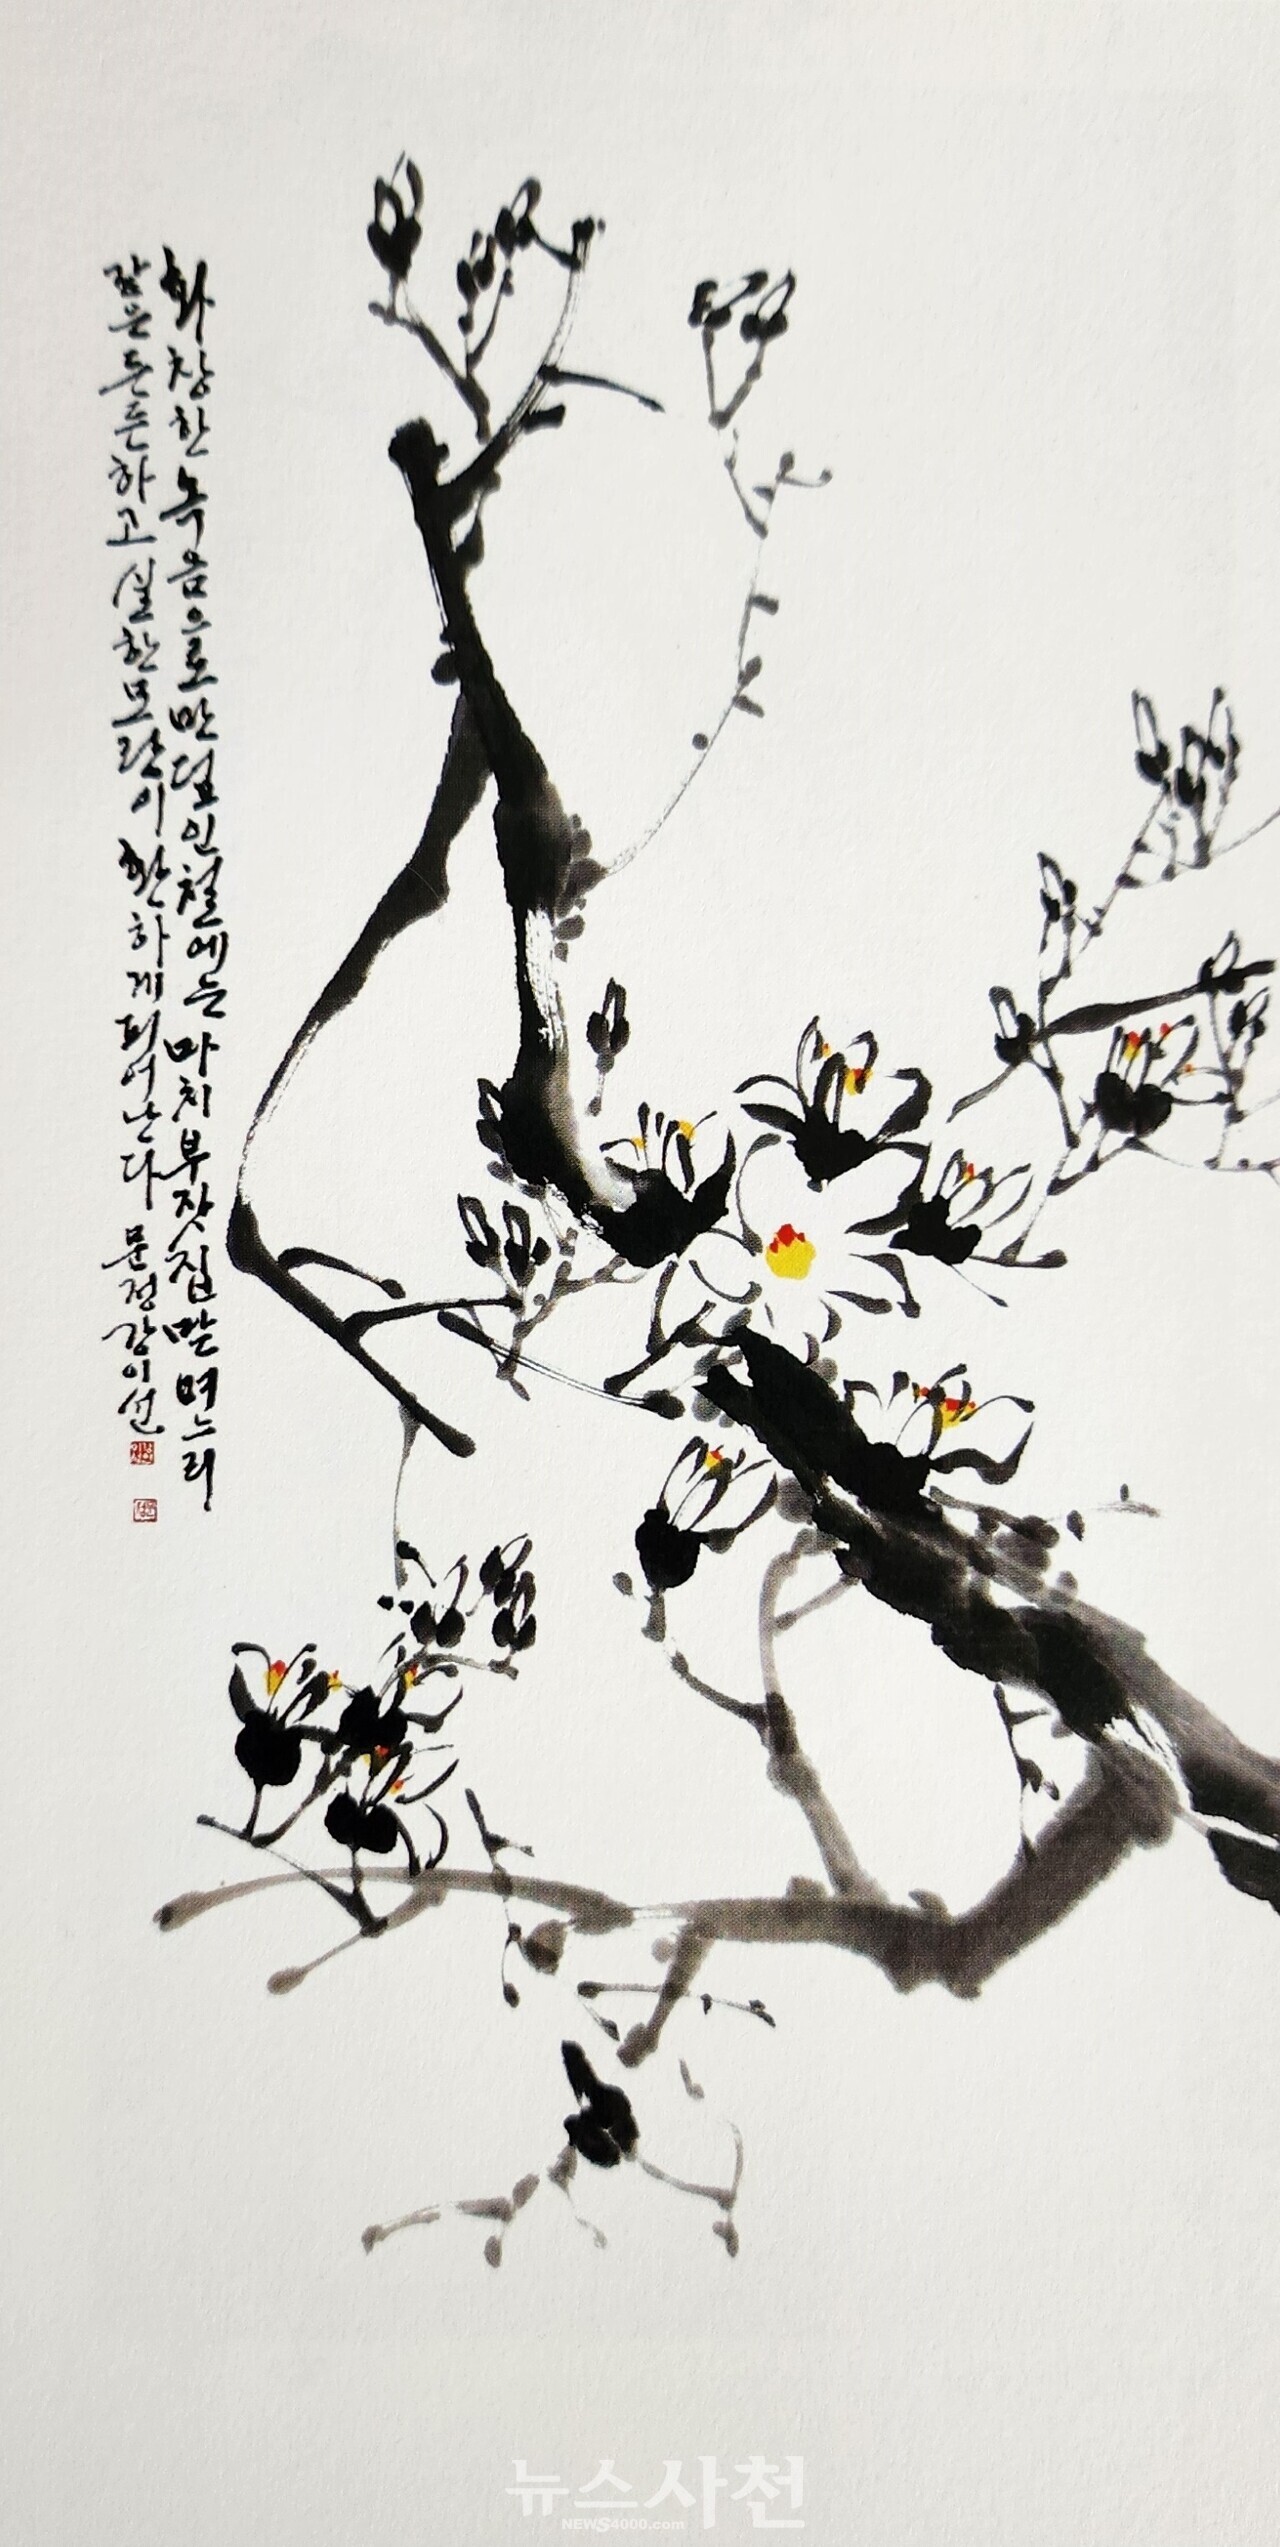 화창한 녹음으로만 덮인 철에는 마치 부잣집 맏며느리
같은 든든하고 실한 모란이 환하게 피어난다 문정 강이선
뉴스사천
NEWS4000.com